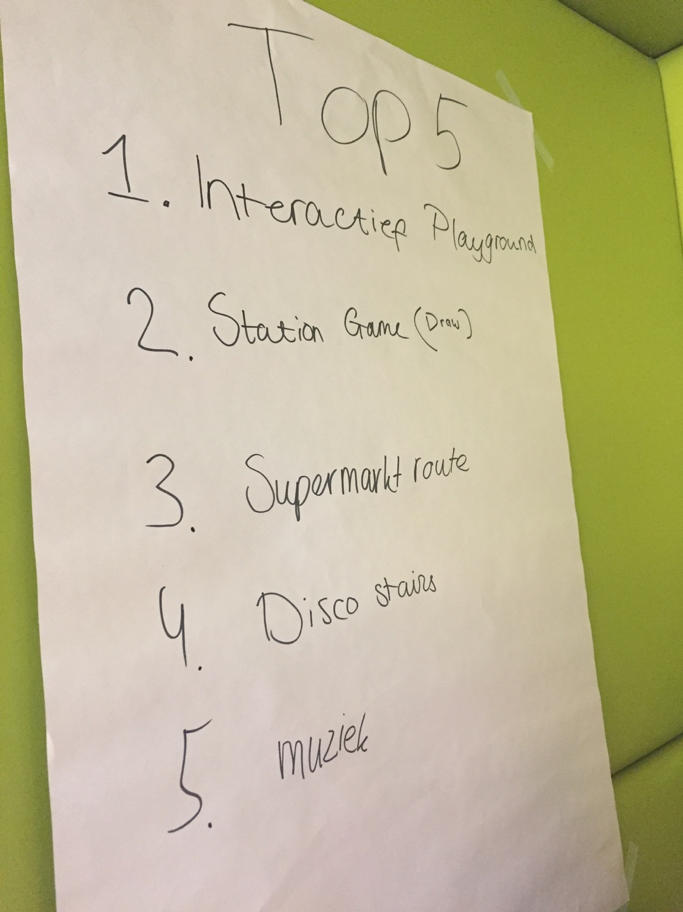 Top 5
1. Interactief Playground
2. Station Game (Draw)
3. Supermarkt route
4. Disco stairs
5. muziek